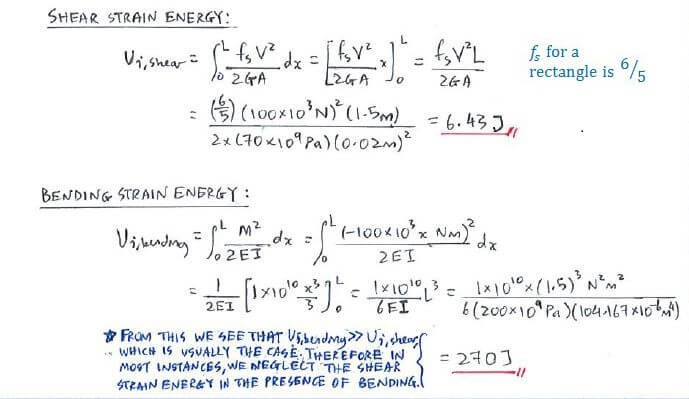 SHEAR STRAIN ENERGY:
U_{i,shear} = ∫_0^L f_s V² / 2GA dx = [f_s V² / 2GA x]_0^L = f_s V² L / 2GA
f_s for a
rectangle is 6/5
= (6/5) (100×10³ N)² (1.5M) / 2×(70×10⁹ Pa)(0.02M)² = 6.43 J
BENDING STRAIN ENERGY:
U_{i,bending} = ∫_0^L M² / 2EI dx = ∫_0^L (-100×10³ x NM)² / 2EI dx
= 1 / 2EI [1×10¹⁰ x³ / 3]_0^L = 1×10¹⁰ / 6EI L³ = 1×10¹⁰ × (1.5)³ N²M² / 6(200×10⁹ Pa)(104.167×10⁻⁶ M⁴)
* FROM THIS WE SEE THAT U_{i,bending} >> U_{i,shear}
WHICH IS USUALLY THE CASE. THEREFORE IN
MOST INSTANCES, WE NEGLECT THE SHEAR
STRAIN ENERGY IN THE PRESENCE OF BENDING.
= 270 J